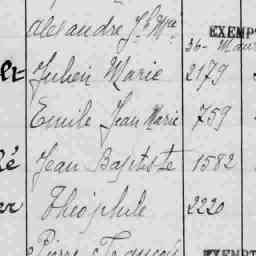 Alexandre Jh Mie EXEMPT
36- Mau
lt= Julien Marie 2179
Emile Jean Marie 759
ré Jean Baptiste 1582
er Théophile 2220
Pierre François EXEMPT